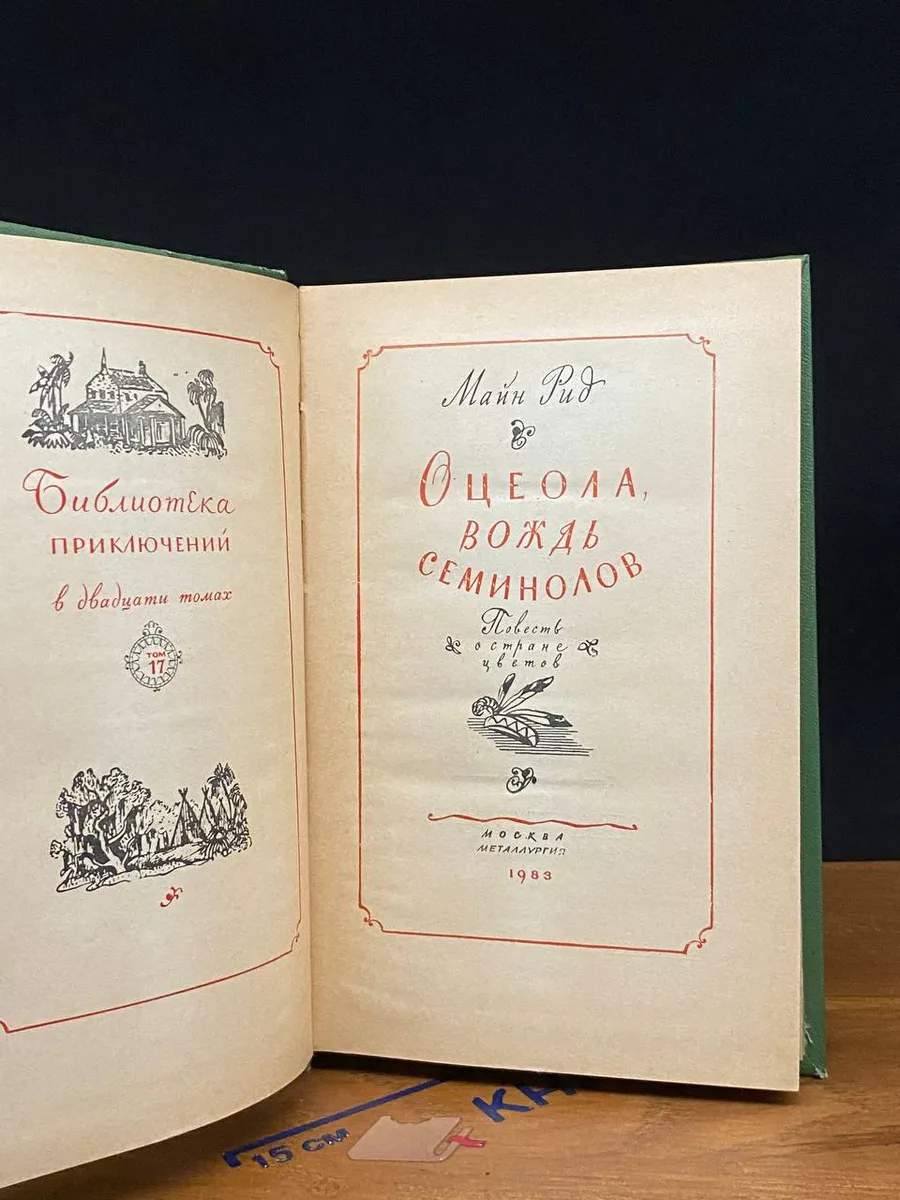 Библиотека
ПРИКЛЮЧЕНИЙ
в двадцати томах
ТОМ
17
Майн Рид
ОЦЕОЛА,
ВОЖДЬ
СЕМИНОЛОВ
Повесть
о стране
цветов
МОСКВА
МЕТАЛЛУРГИЯ
1983
15 СМ